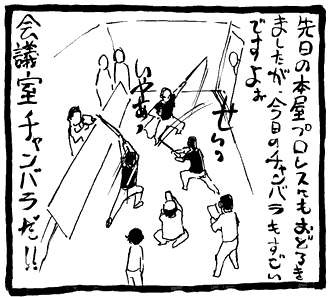 先日の本屋プロレスにもおどろき
ましたが、今日のチャンバラもすごい
ですよぉ
せいっ
いやあっ
会議室チャンバラだ!!